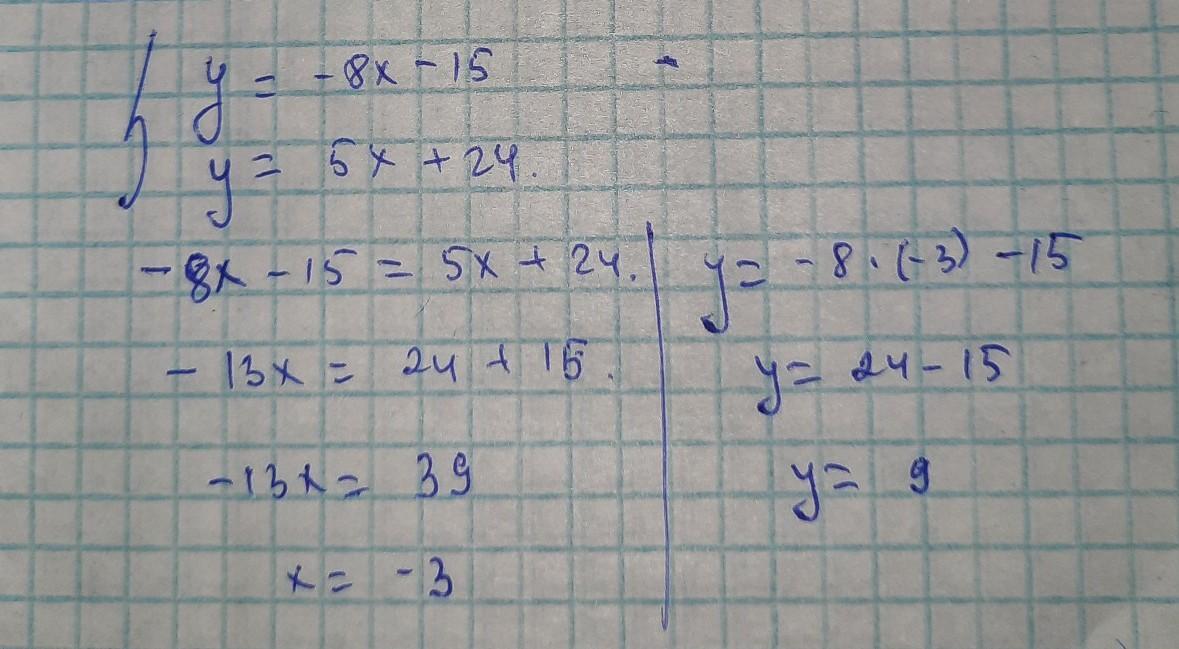 y = -8x - 15
y = 5x + 24.
-8x - 15 = 5x + 24.
-13x = 24 + 15.
-13x = 39
x = -3
y = -8 · (-3) - 15
y = 24 - 15
y = 9